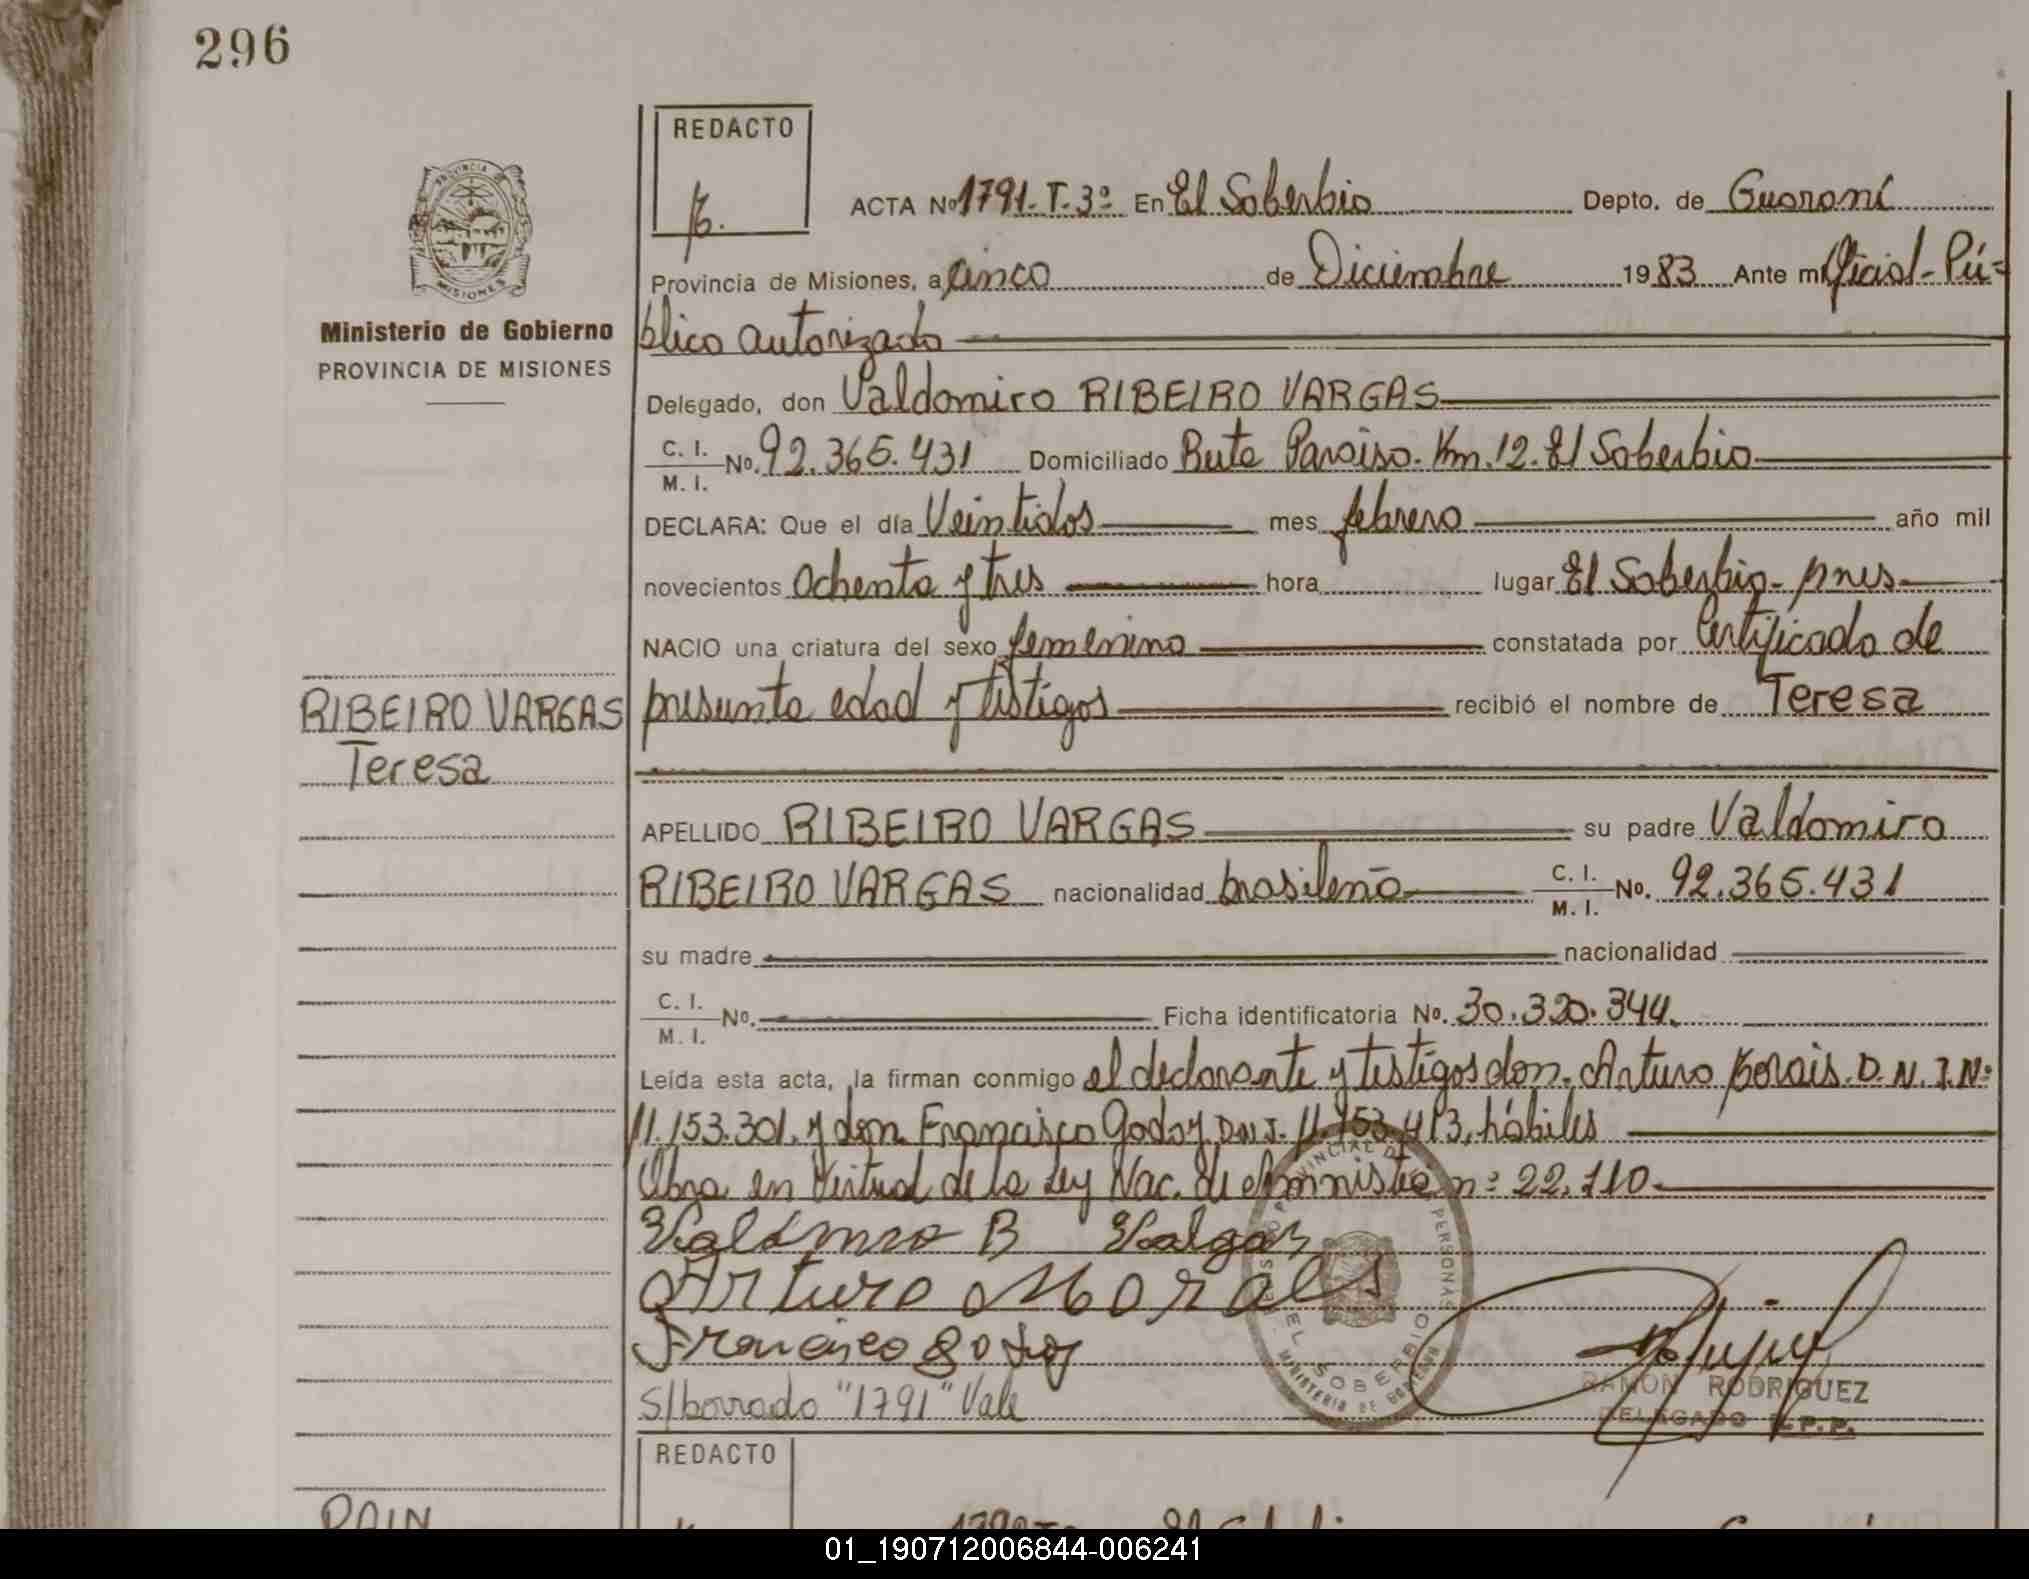 296
REDACTO
ACTA Nº 1791-T-3º En El Soberbio Depto. de Guaraní
Provincia de Misiones, a cinco de Diciembre 1983 Ante mí Oficial-Pú=
blico autorizado
PROVINCIA
MISIONES
Ministerio de Gobierno
PROVINCIA DE MISIONES
Delegado, don Valdomiro RIBEIRO VARGAS
C. I. M. I. Nº. 92.365.431 Domiciliado Ruta Paraiso. Km. 12. El Soberbio
DECLARA: Que el día Veintidos mes febrero año mil
novecientos ochenta y tres hora lugar El Soberbio-
NACIO una criatura del sexo femenino constatada por Certificado de
RIBEIRO VARGAS
Teresa
presunta edad y testigos recibió el nombre de Teresa
APELLIDO RIBEIRO VARGAS su padre Valdomiro
RIBEIRO VARGAS nacionalidad brasileño C. I. M. I. Nº. 92.365.431
su madre nacionalidad
C. I. M. I. Nº. Ficha identificatoria Nº. 30.320.344.
Leída esta acta, la firman conmigo el declarante y testigos don. Arturo D. N. I. Nº
11.153.301. y don Francisco Godoy D.N.I. 11.153.413, hábiles
Obra en Virtud de la Ley Nac. de Amnistia nº 22.710.
Valdmro B Valgas
Arturo Morais
Francisco Godoy
S/borrado "1791" Vale
REGISTRO PROVINCIAL DE LAS PERSONAS
EL SOBERBIO
MINISTERIO DE GOBIERNO
RAMON RODRIGUEZ
DELEGADO R.P.P.
REDACTO
01_190712006844-006241